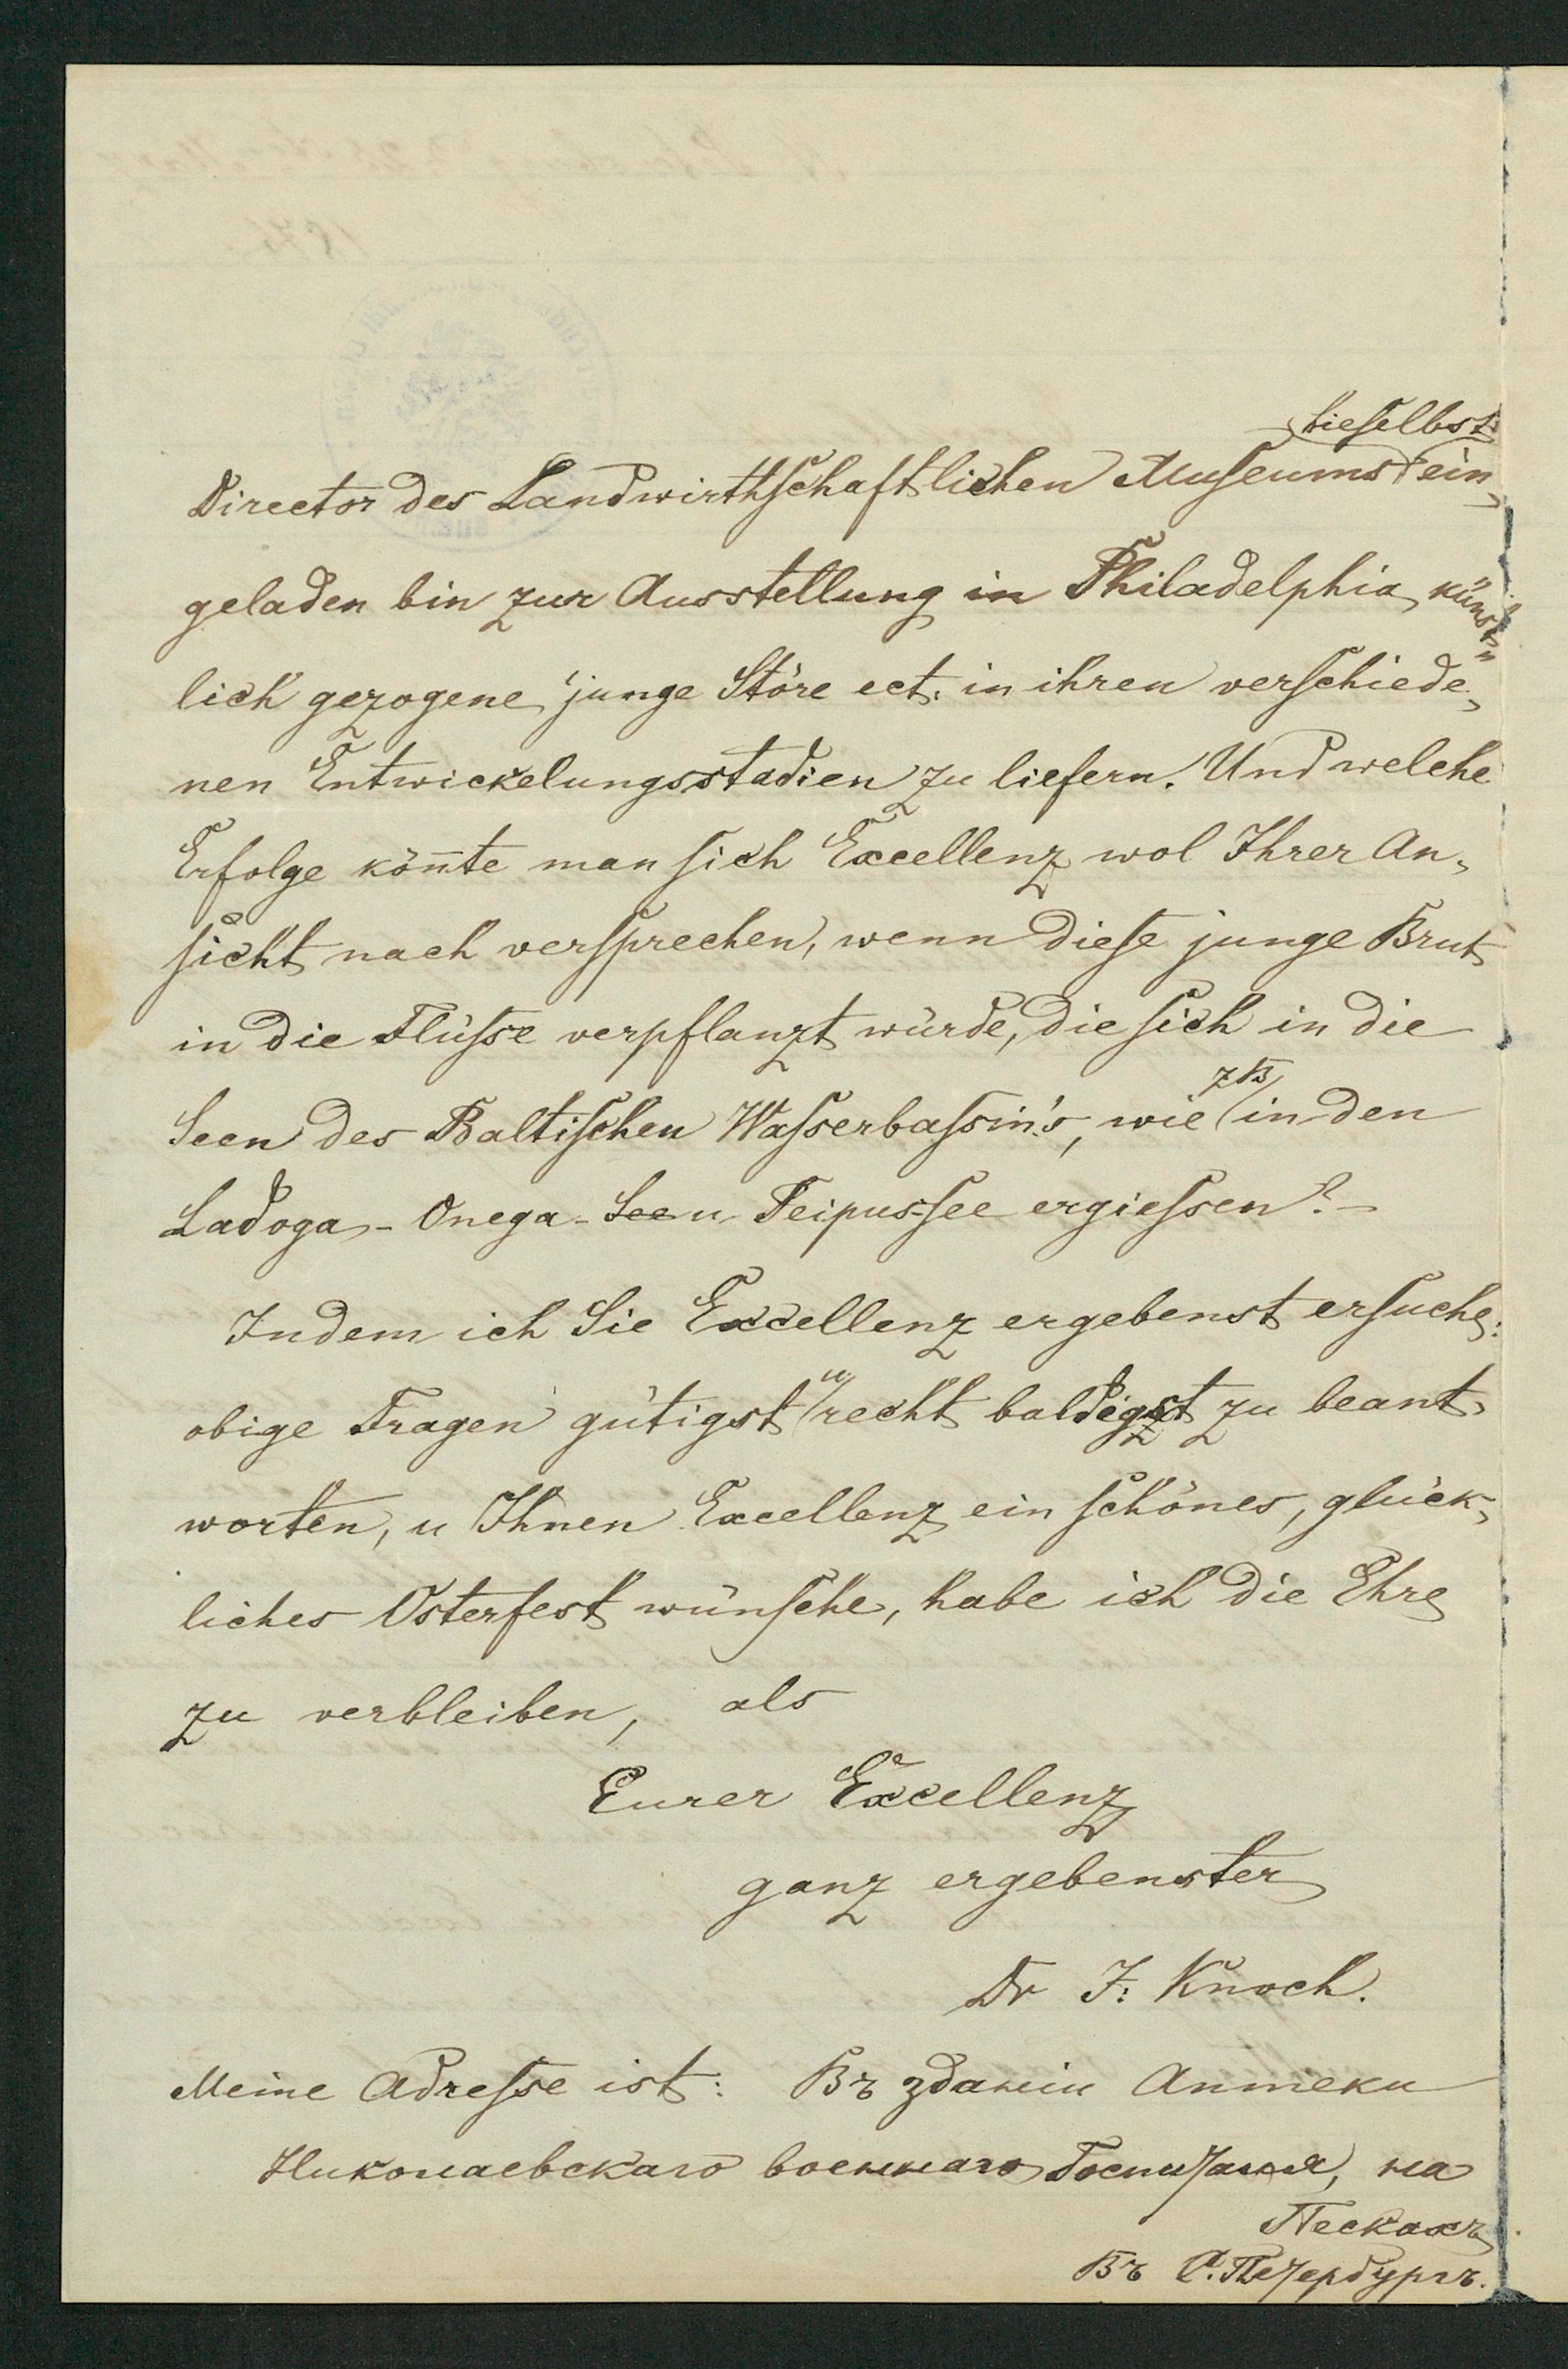 hieselbst
Director des Landwirthschaftlichen Museums ein„
geladen bin zur Ausstellung in Philadelphia künst„
lich gezogene junge Störe ect. in ihren verschiede„
nen Entwickelungsstadien zu liefern. Und welche
Erfolge kön̄te man sich Excellenz wol Ihrer An„
sicht nach versprechen, wenn diese junge Brut
in die Flüsse verpflanzt würde, die sich in die
Seen des Baltischen Wasserbassin's, wie z B in den
Ladoga- Onega- See u Peipus-see ergiessen? –
Indem ich Sie Excellenz ergebenst ersuche:
obige Fragen gütigst u recht baldigst zu beant„
worten, u Ihnen Excellenz ein schönes, glück„
liches Osterfest wünsche, habe ich die Ehre
zu verbleiben, als
Eurer Excellenz
ganz ergebenster
Dr J: Knoch.
Meine Adresse ist: Въ зданіи Аптеки
Николаевскаго военнаго Госпиталя, на
Пескахъ
Въ С. Петербургѣ.